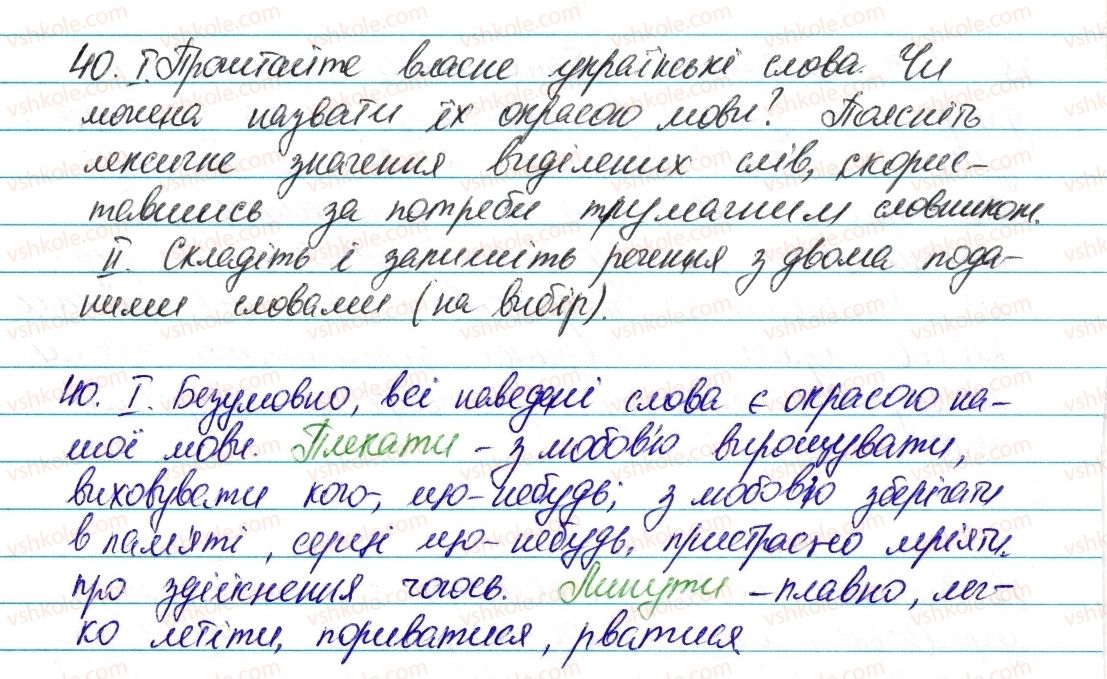 40. I. Прочитайте власне українські слова. Чи
можна назвати їх окрасою мови? Поясніть
лексичне значення виділених слів, скорис-
тавшись за потреби тлумачним словником.
II. Складіть і запишіть речення з двома пода-
ними словами (на вибір).
40. I. Безумовно, всі наведені слова є окрасою на-
шої мови. Плекати - з любов'ю вирощувати,
виховувати кого-, що-небудь; з любов'ю зберігати
в пам'яті, серці що-небудь, пристрасно мріяти
про здійснення чогось. Линути - плавно, лег-
ко летіти, пориватися, рватися.